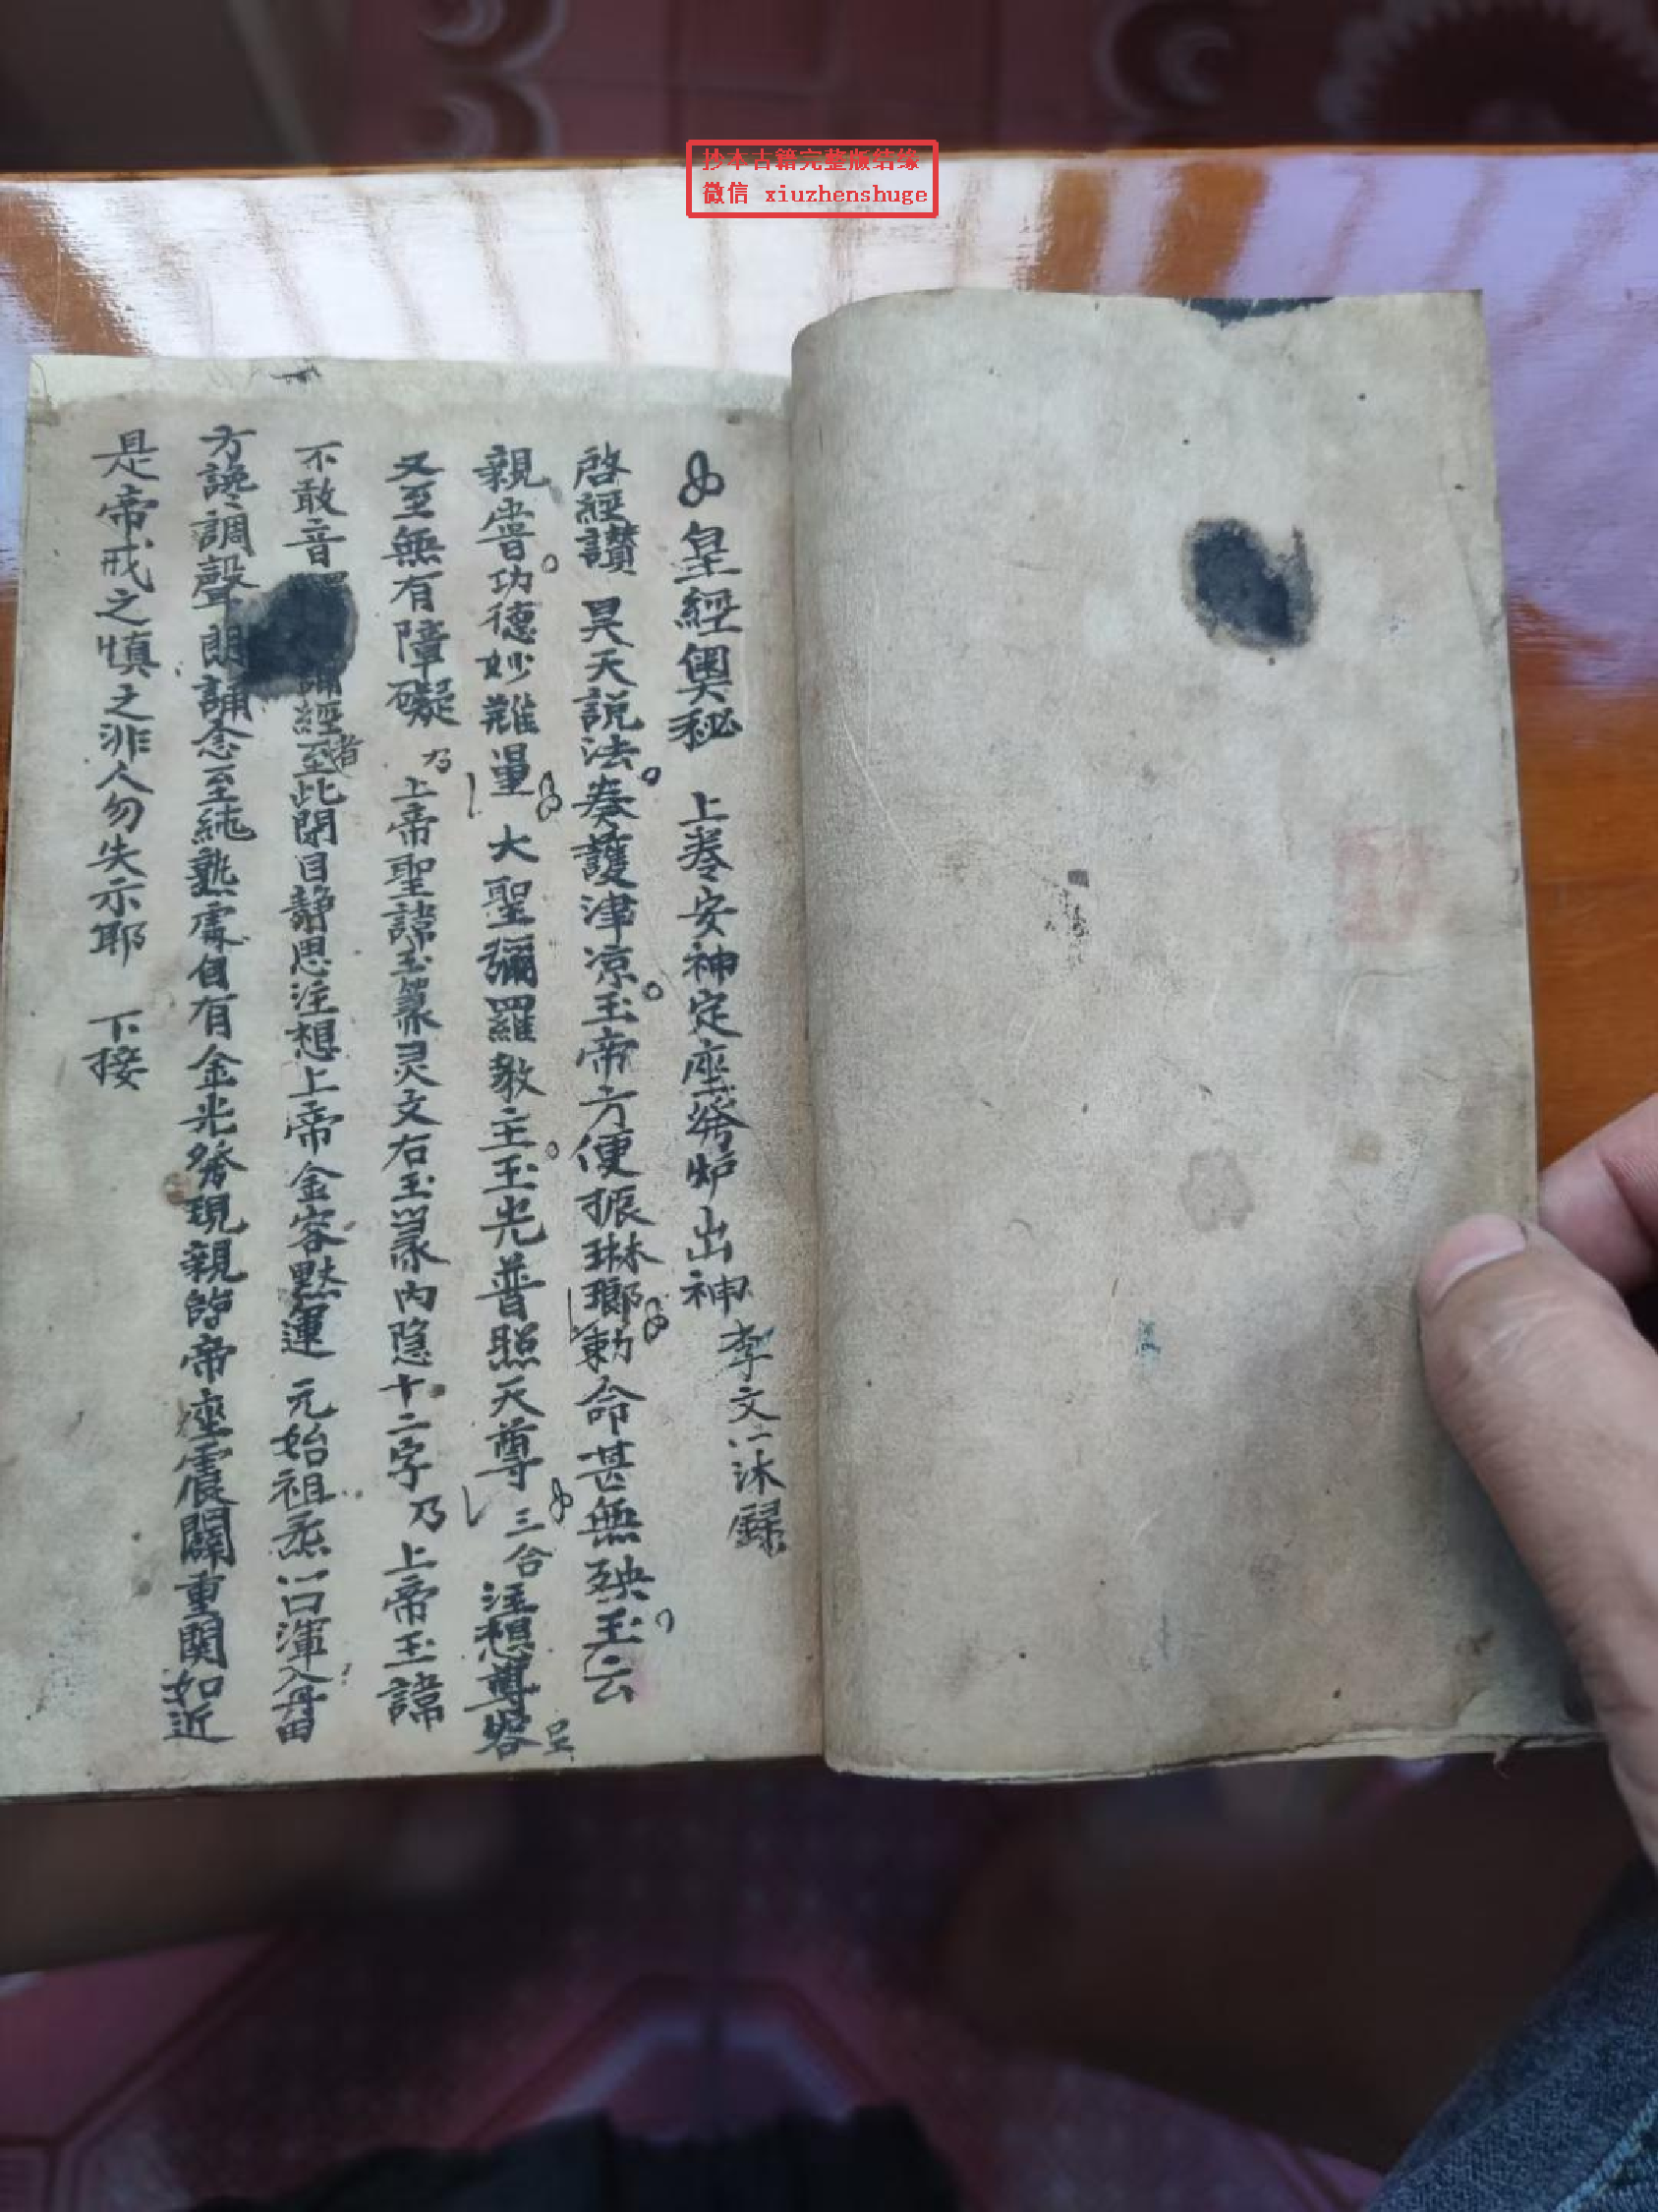 抄本古籍完整版结缘
微信 xiuzhenshuge
皇經奧秘 上卷安神定座發炉出神 李文八沐録
啓經讃 昊天説法奏護津凉玉帝方便振琳瑯勅命甚無殃玉云
親嘗功德妙難量 大聖彌羅教主玉光普照天尊 三合 注想尊容
又至無有障礙 乃 上帝聖諱玉篆灵文右玉篆内隐十二字 乃 上帝玉諱
不敢音 誦經者至此閉目静思注想上帝金容默運 元始祖炁 渾入丹田
方讒調聲朗誦念至純熟處自有金光發現親臨帝座震闢重関如近
是帝戒之慎之非人勿失示耶 下接